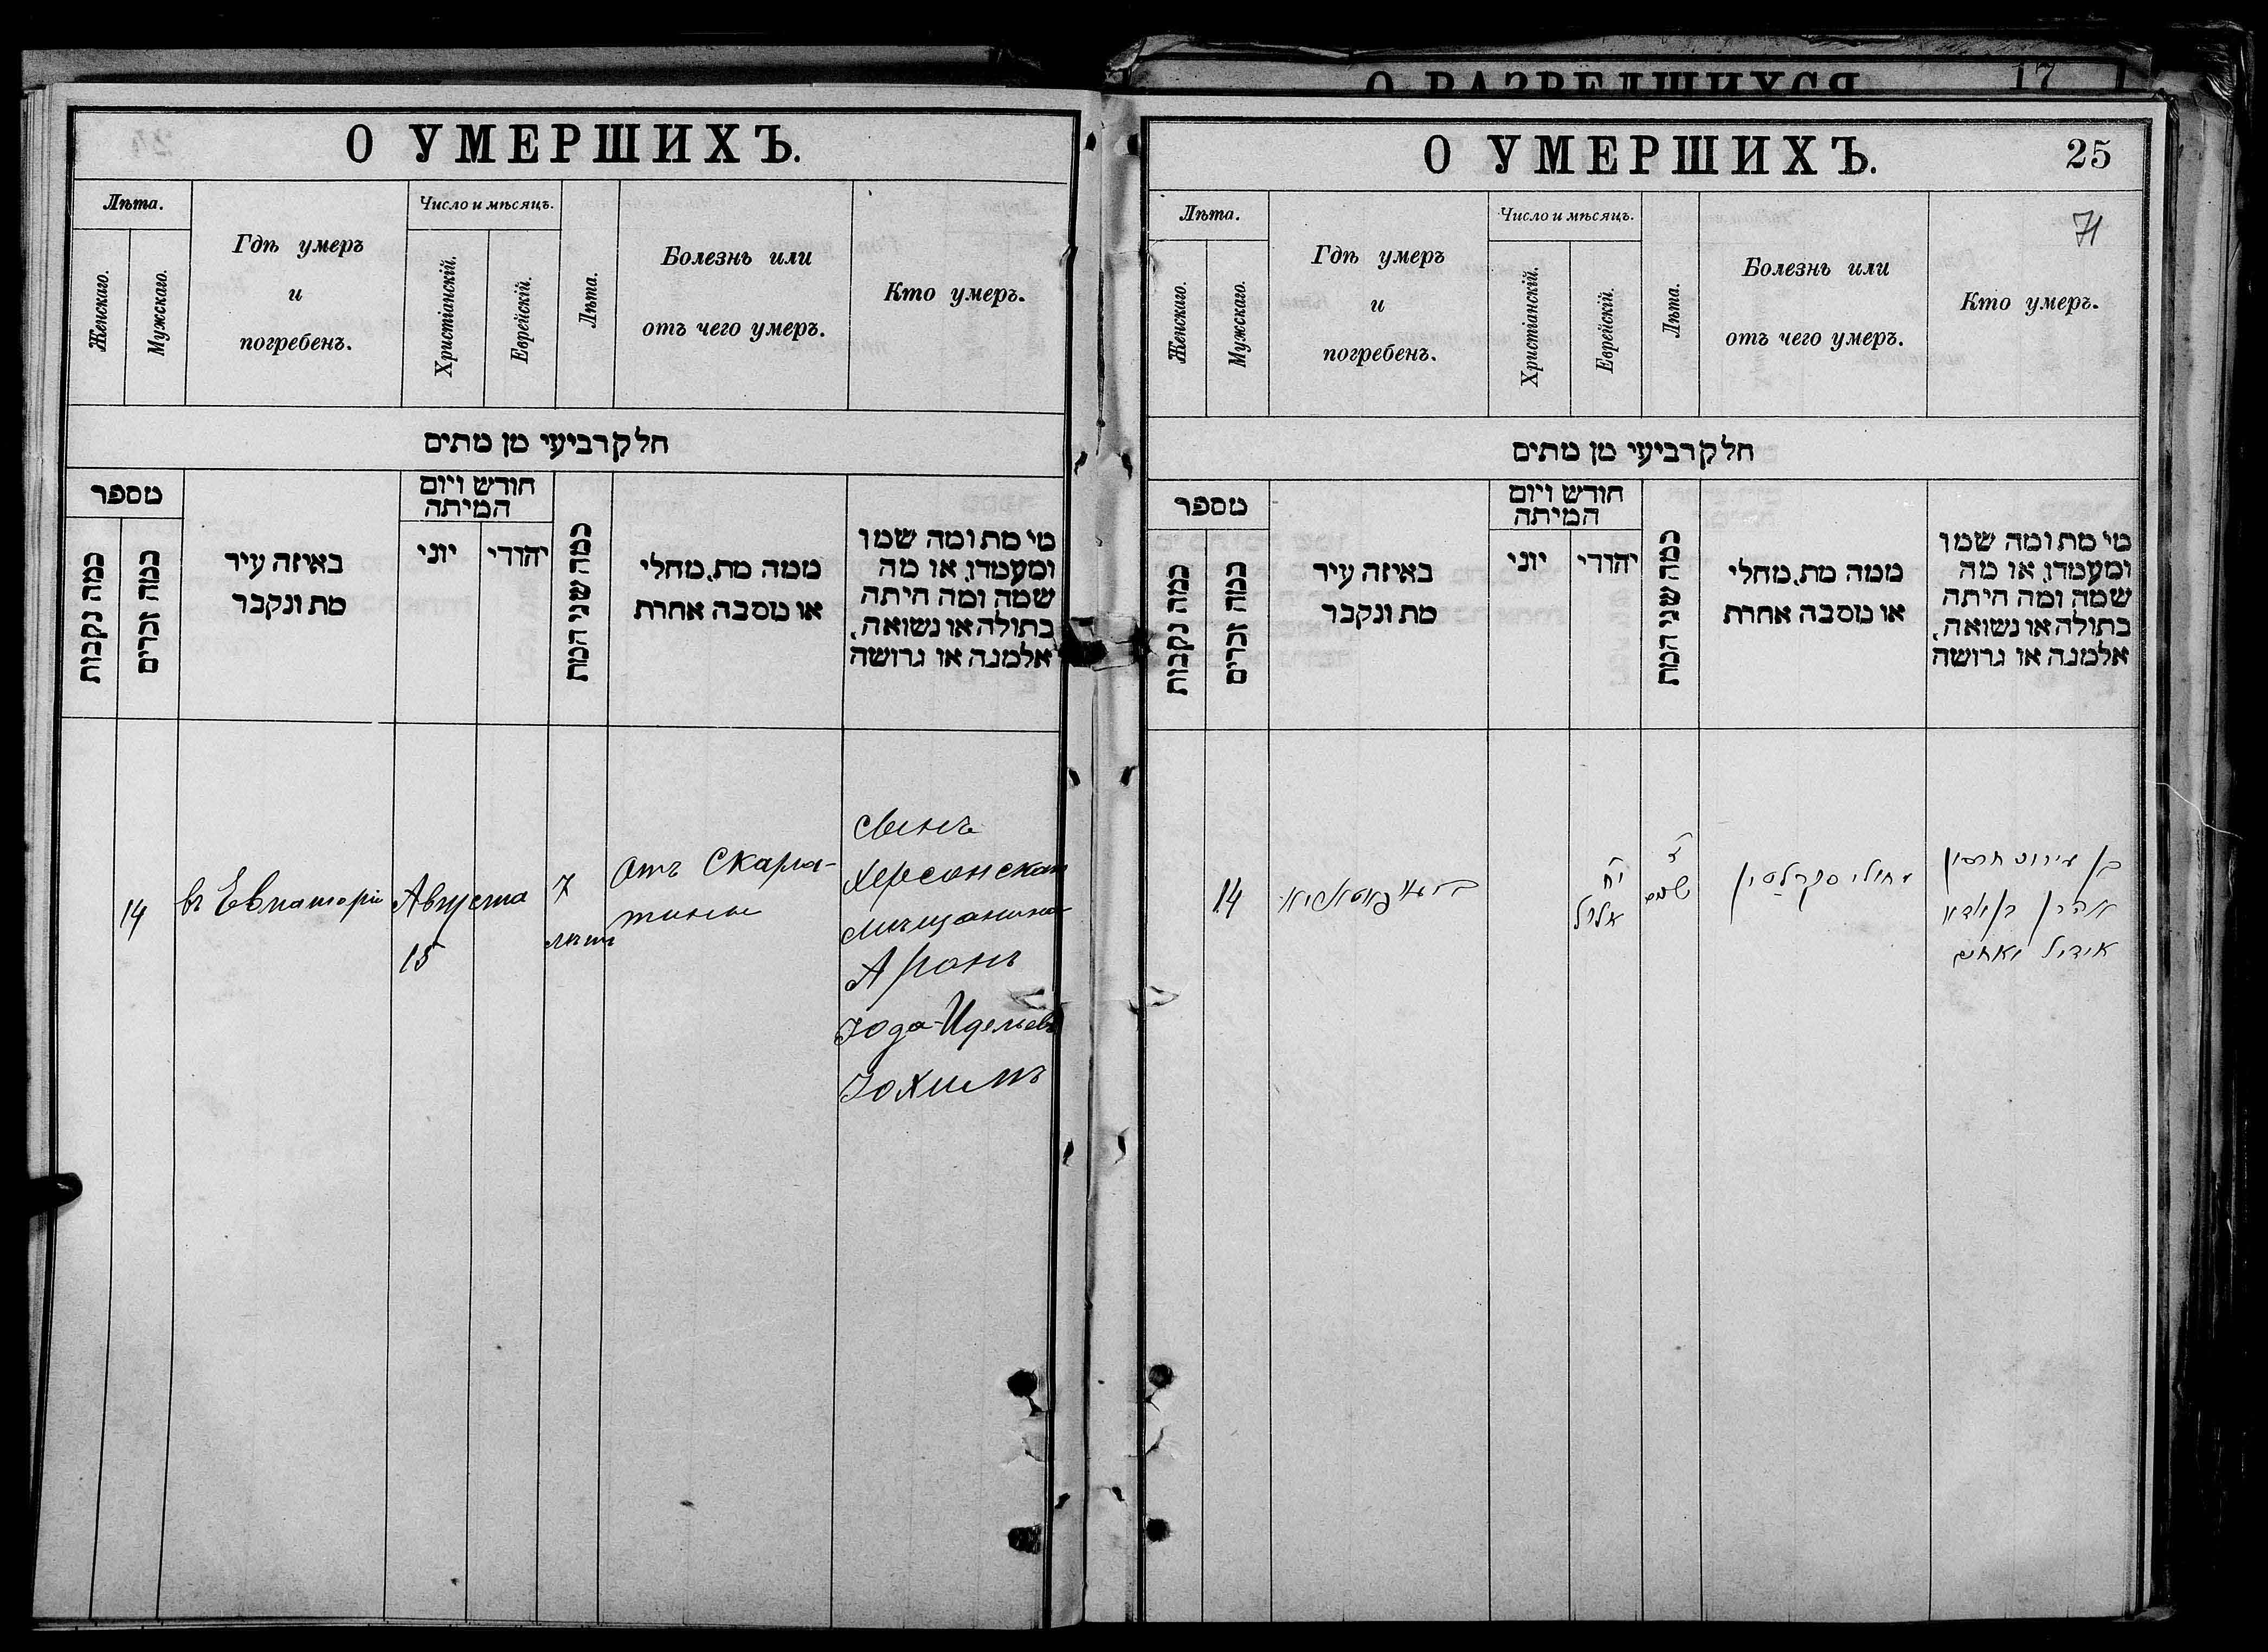 О РАЗВЕДШИХСЯ
17
О УМЕРШИХЪ.
Лѣта.
Женскаго.
Мужскаго.
Гдѣ умеръ
и
погребенъ.
Число и мѣсяцъ.
Христіанскій.
Еврейскій.
Лѣта.
Болезнь или
отъ чего умеръ.
Кто умеръ.
חלק רביעי מן מתים
מספר
כמה נקבות
כמה זכרים
באיזה עיר
מת ונקבר
חודש ויום
המיתה
יוני
יהודי
כמה שני המת
ממה מת, מחלי
או מסבה אחרת
מי מת ומה שמו
ומעמדו, או מה
שמה ומה היתה
בתולה או נשואה,
אלמנה או גרושה
14
въ Евпаторіи
Августа
15
7
лѣтъ
Отъ Скарла-
тины
Сынъ
Херсонскаго
мѣщанина
Аронъ
Іода-Идельевъ
Іохимъ
О УМЕРШИХЪ.
25
71
Лѣта.
Женскаго.
Мужскаго.
Гдѣ умеръ
и
погребенъ.
Число и мѣсяцъ.
Христіанскій.
Еврейскій.
Лѣта.
Болезнь или
отъ чего умеръ.
Кто умеръ.
חלק רביעי מן מתים
מספר
כמה נקבות
כמה זכרים
באיזה עיר
מת ונקבר
חודש ויום
המיתה
יוני
יהודי
כמה שני המת
ממה מת, מחלי
או מסבה אחרת
מי מת ומה שמו
ומעמדו, או מה
שמה ומה היתה
בתולה או נשואה,
אלמנה או גרושה
14
יח
אלול
ז
שנים
בן עירוני חרסון
אהרן בן יודא
אידיל יאחים